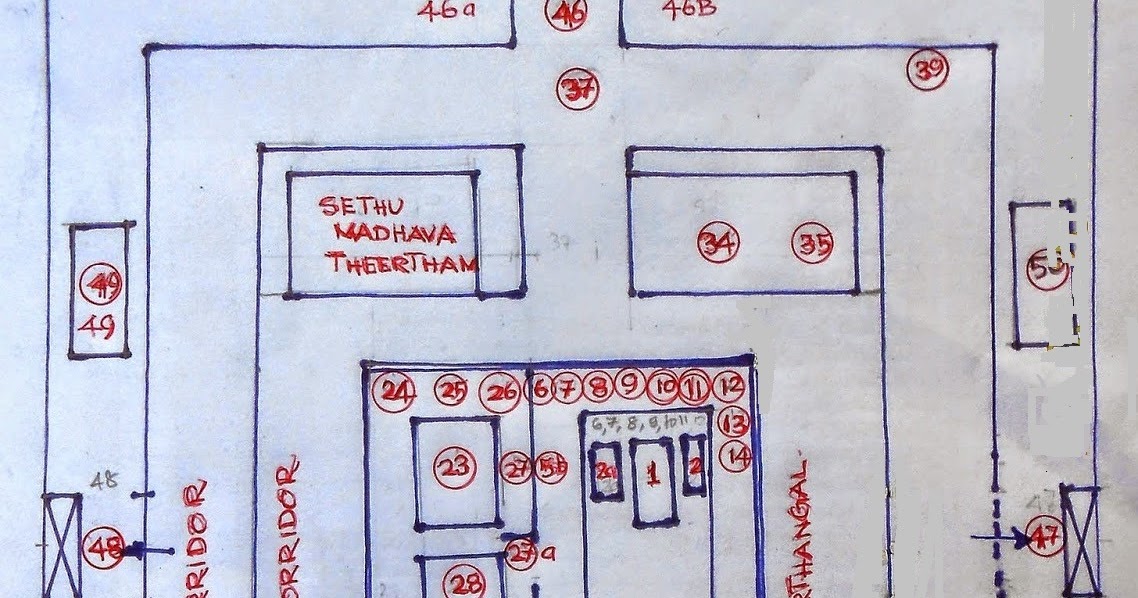 46a 46 46B
39
37
SETHU
MADHAVA
THEERTHAM
37
34 35
49
49
24 25 26 6 7 8 9 10 11 12
6,7,8,9,10,11
13
23 27 5b 2a 1 2 14
48
48
47
47
27a
28
RRIDOR
ORRIDOR
RTHANGAL